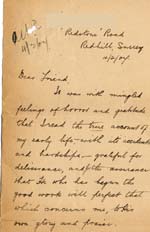 Redstone Road
Redhill, Surrey
11/2/04.
Dear Friend
It was with mingled
feelings of horror and gratitude
that I read the true account of
my early life - with its accidents
and hardships - grateful for
deliverance, and the assurance
that He who has began the
good work will perfect that
which concerns me, to His
own glory and praise.